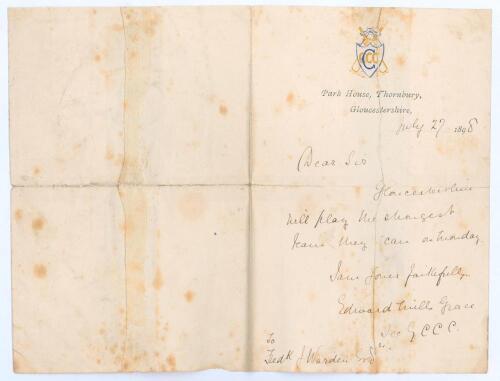 Park House, Thornbury,
Gloucestershire,
July 27 1898
Dear Sir
Gloucestershire
will play the strongest
team they can on Monday
I am Yours faithfully
Edward Mills Grace
Sec G. C C C.
To
Fredk J Warden Esqre.